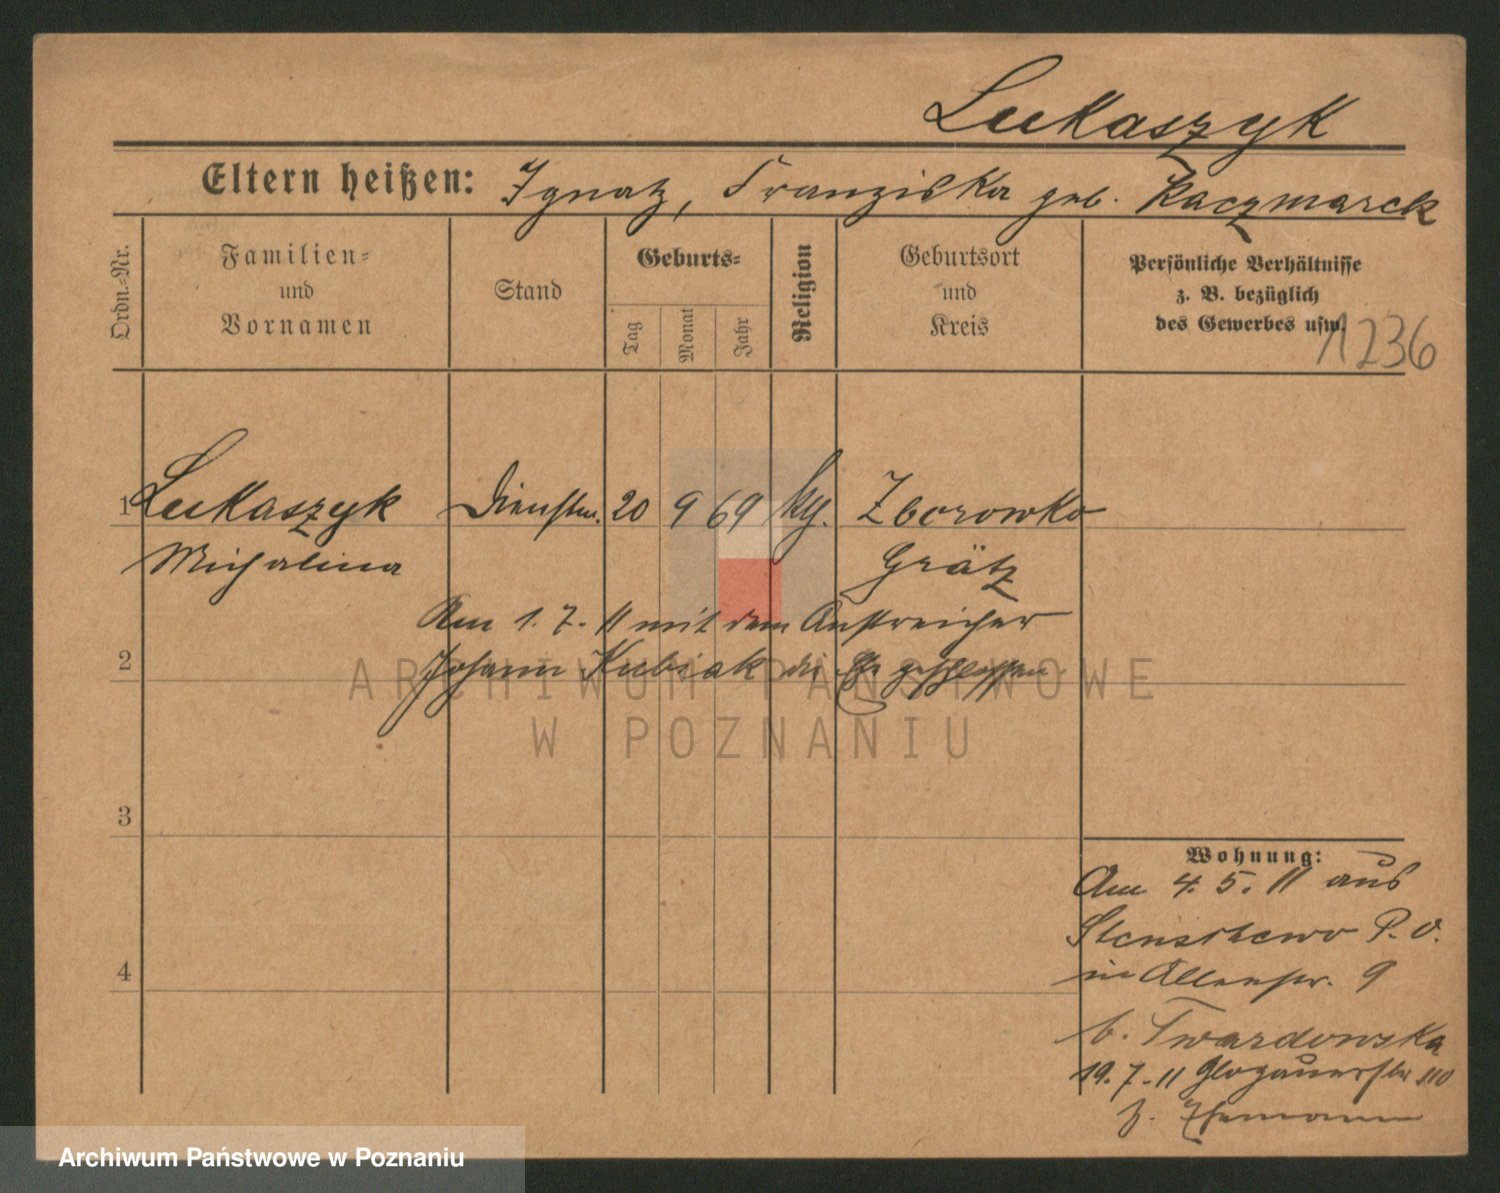 Lukaszyk
Eltern heißen: Ignatz, Franziska geb. Kaczmarek
Ordn.-Nr.
Familien-
und
Vornamen
Stand
Geburts-
Tag
Monat
Jahr
Religion
Geburtsort
und
Kreis
Persönliche Verhältnisse
z. B. bezüglich
des Gewerbes usw.
1236
1 Lukaszyk Dienstm. 20 9 69 Zborowko
Michalina Grätz
Am 1.7.11 mit dem Anstreicher
2 Johann Kubiak die Ehe geschlossen
3
4
Wohnung:
Am 4.5.11 aus
Stenschewo P. O.
in 9
b. Twardowska
19.7.11 Glogauerstr 110
ARCHIWUM PAŃSTWOWE
W POZNANIU
Archiwum Państwowe w Poznaniu